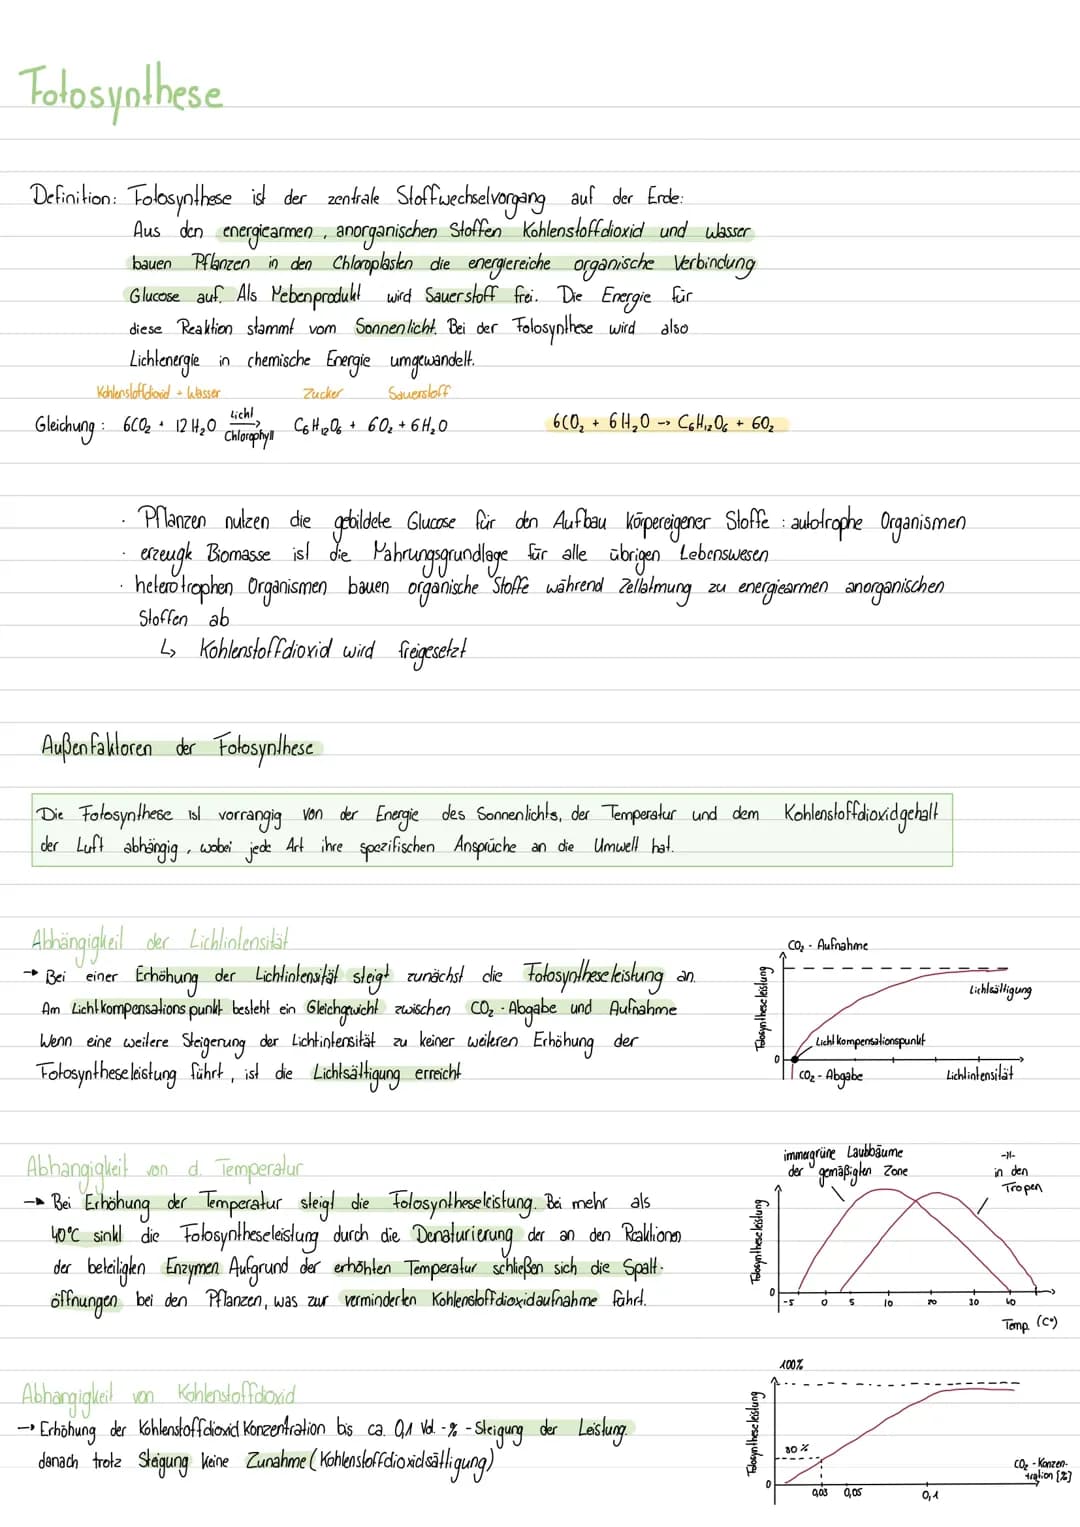 Fotosynthese
Definition: Fotosynthese ist der zentrale Stoffwechselvorgang auf der Erde:
Aus den energiearmen, anorganischen Stoffen Kohlenstoffdioxid und Wasser
bauen Pflanzen in den Chloroplasten die energiereiche organische Verbindung
Glucose auf. Als Nebenprodukt wird Sauerstoff frei. Die Energie für
diese Reaktion stammt vom Sonnenlicht. Bei der Fotosynthese wird also
Lichtenergie in chemische Energie umgewandelt.
Kohlenstoffdioxid + Wasser Zucker Sauerstoff
Gleichung: 6CO₂ + 12 H₂O Licht → Chlorophyll C₆H₁₂O₆ + 6O₂ + 6H₂O 6CO₂ + 6H₂O -> C₆H₁₂O₆ + 6O₂
· Pflanzen nutzen die gebildete Glucose für den Aufbau körpereigener Stoffe : autotrophe Organismen
· erzeugte Biomasse ist die Nahrungsgrundlage für alle übrigen Lebenswesen
· heterotrophen Organismen bauen organische Stoffe während Zellatmung zu energiearmen anorganischen
Stoffen ab
↳ Kohlenstoffdioxid wird freigesetzt
Außenfaktoren der Fotosynthese
Die Fotosynthese ist vorrangig von der Energie des Sonnenlichts, der Temperatur und dem Kohlenstoffdioxidgehalt
der Luft abhängig, wobei jede Art ihre spezifischen Ansprüche an die Umwelt hat.
Abhängigkeit der Lichtintensität
→ Bei einer Erhöhung der Lichtintensität steigt zunächst die Fotosyntheseleistung an.
Am Lichtkompensationspunkt besteht ein Gleichgewicht zwischen CO₂ - Abgabe und Aufnahme
Wenn eine weitere Steigerung der Lichtintensität zu keiner weiteren Erhöhung der
Fotosyntheseleistung führt, ist die Lichtsättigung erreicht
CO₂ - Aufnahme
Fotosyntheseleistung
Lichtsättigung
Lichtkompensationspunkt
0
CO₂ - Abgabe
Lichtintensität
Abhangigkeit von d. Temperatur
→ Bei Erhöhung der Temperatur steigt die Fotosyntheseleistung. Bei mehr als
40°C sinkt die Fotosyntheseleistung durch die Denaturierung der an den Reaktionen
der beteiligten Enzymen Aufgrund der erhöhten Temperatur schließen sich die Spalt-
öffnungen bei den Pflanzen, was zur verminderten Kohlenstoffdioxidaufnahme führt.
immergrüne Laubbäume
der gemäßigten Zone
-||-
in den
Tropen
Fotosyntheseleistung
0
-5 0 5 10 20 30 40
Temp. (C°)
Abhangigkeit von Kohlenstoffdioxid
→ Erhöhung der Kohlenstoffdioxid Konzentration bis ca. 0,1 Vol. -% - Steigung der Leistung.
danach trotz Steigung keine Zunahme (Kohlenstoffdioxidsättigung)
100%
Fotosyntheseleistung
30 %
0
0,03 0,05 0,1
CO₂ - Konzen-
tration [%]